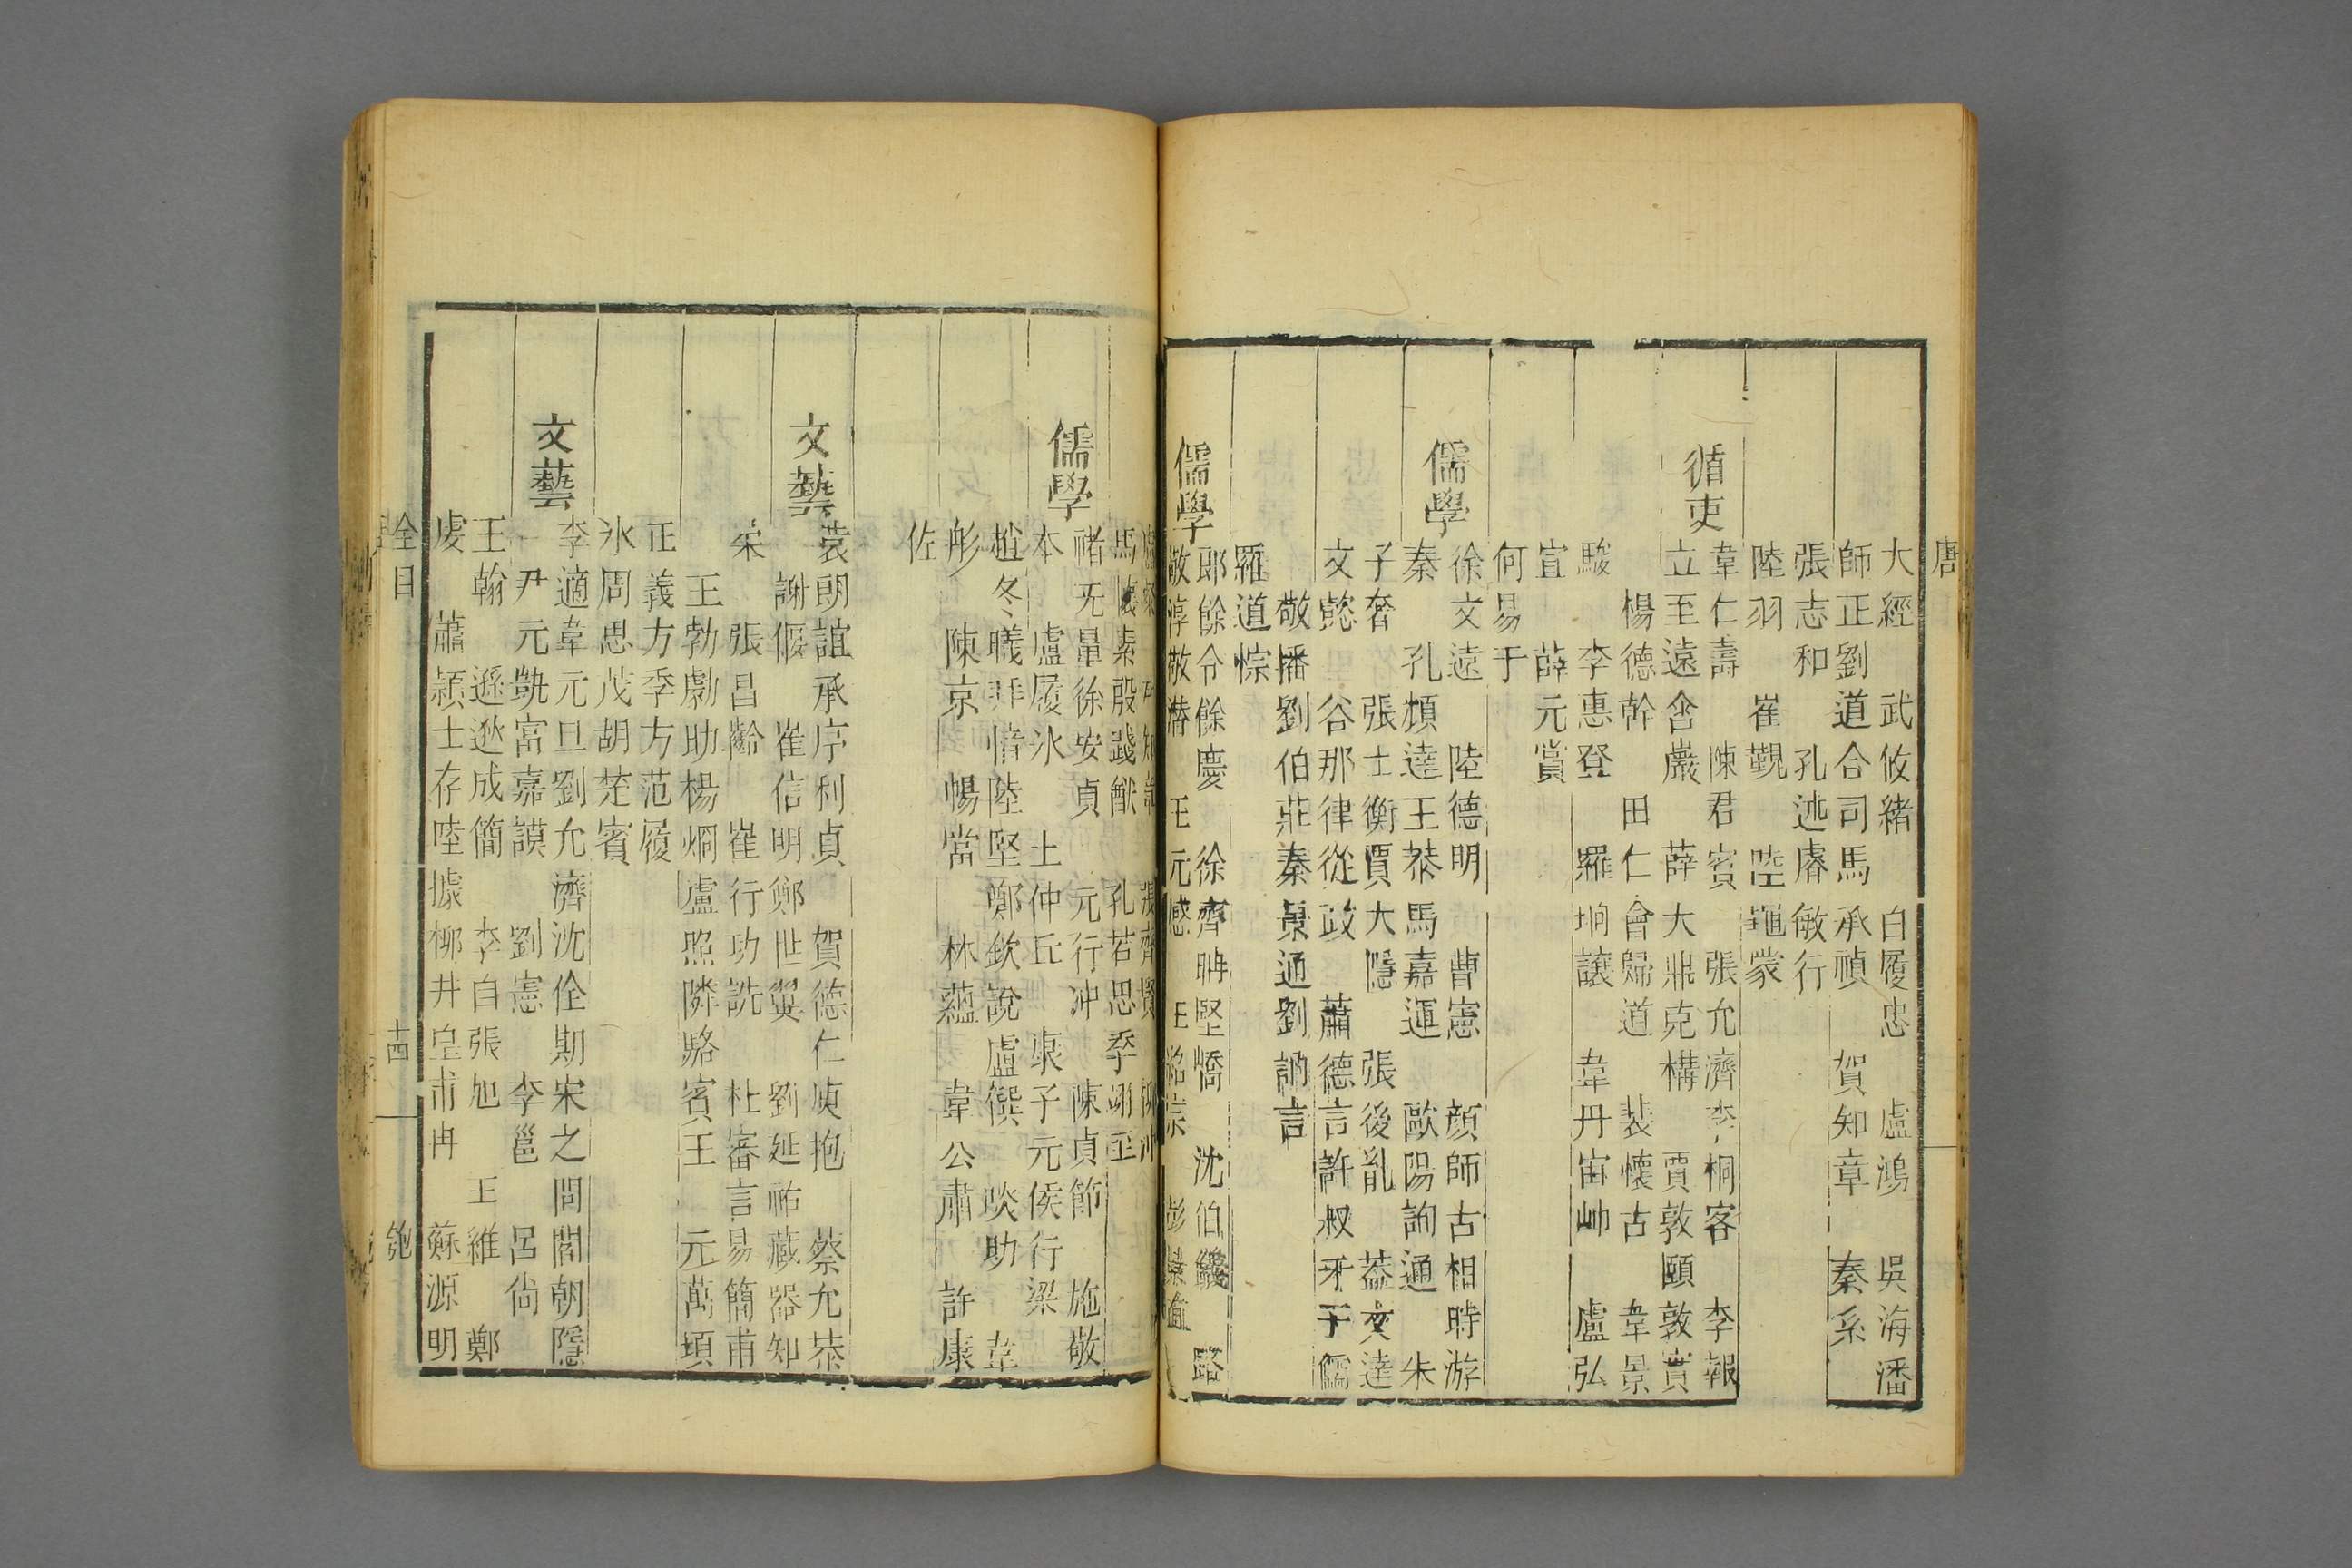 唐
大經 武攸緒 白履忠 盧鴻 吳海潘
師正劉道合司馬承禎 賀知章 秦系
張志和 孔述睿敏行
陸羽 崔覲 陸龜蒙
循吏
韋仁壽 陳君賓 張允濟李桐客 李報
立至遠畬巖 薛大鼎克構 賈敦頤敦實
楊德幹 田仁會歸道 裴懷古 韋景
駿 李惠登 羅珦讓 韋丹宙岫 盧弘
宣 薛元賞
何易于
儒學
徐文遠 陸德明 曹憲 顏師古相時游
秦 孔頴達王恭馬嘉運 歐陽詢通 朱
子奢 張士衡賈大隱 張後胤 蓋文達
文懿 谷那律從政 蕭德言許叔牙子儒
敬播劉伯莊秦景通劉訥言
羅道悰
儒學
郎餘令餘慶 徐齊聃堅嶠 沈伯儀 路
敬淳敬潛 王元感 王紹宗 彭景直
馬懷素殷踐猷 孔若思季詡至
褚无量徐安貞 元行沖 陳貞節 施敬
本 盧履氷 王仲丘 康子元侯行梁
趙冬曦 陸堅鄭欽說盧僎 啖助 韋
彤 陳京 暢當 林蘊 韋公肅 許康
佐
文藝
袁朗誼承序利貞 賀德仁庾抱 蔡允恭
謝偃 崔信明鄭世翼 劉延祐藏器知
柔 張昌齡 崔行功詵 杜審言易簡甫
王勃勮助楊烱盧照隣駱賓王 元萬頃
正義方季方范履
氷周思茂胡楚賓
文藝
李適韋元旦劉允濟沈佺期宋之問閻朝隱
尹元凱富嘉謨 劉憲 李邕 呂尚
王翰 遜逖成簡 李白張旭 王維 鄭
虔 蕭頴士存陸據柳井皇甫冉 蘇源明
全目
十四